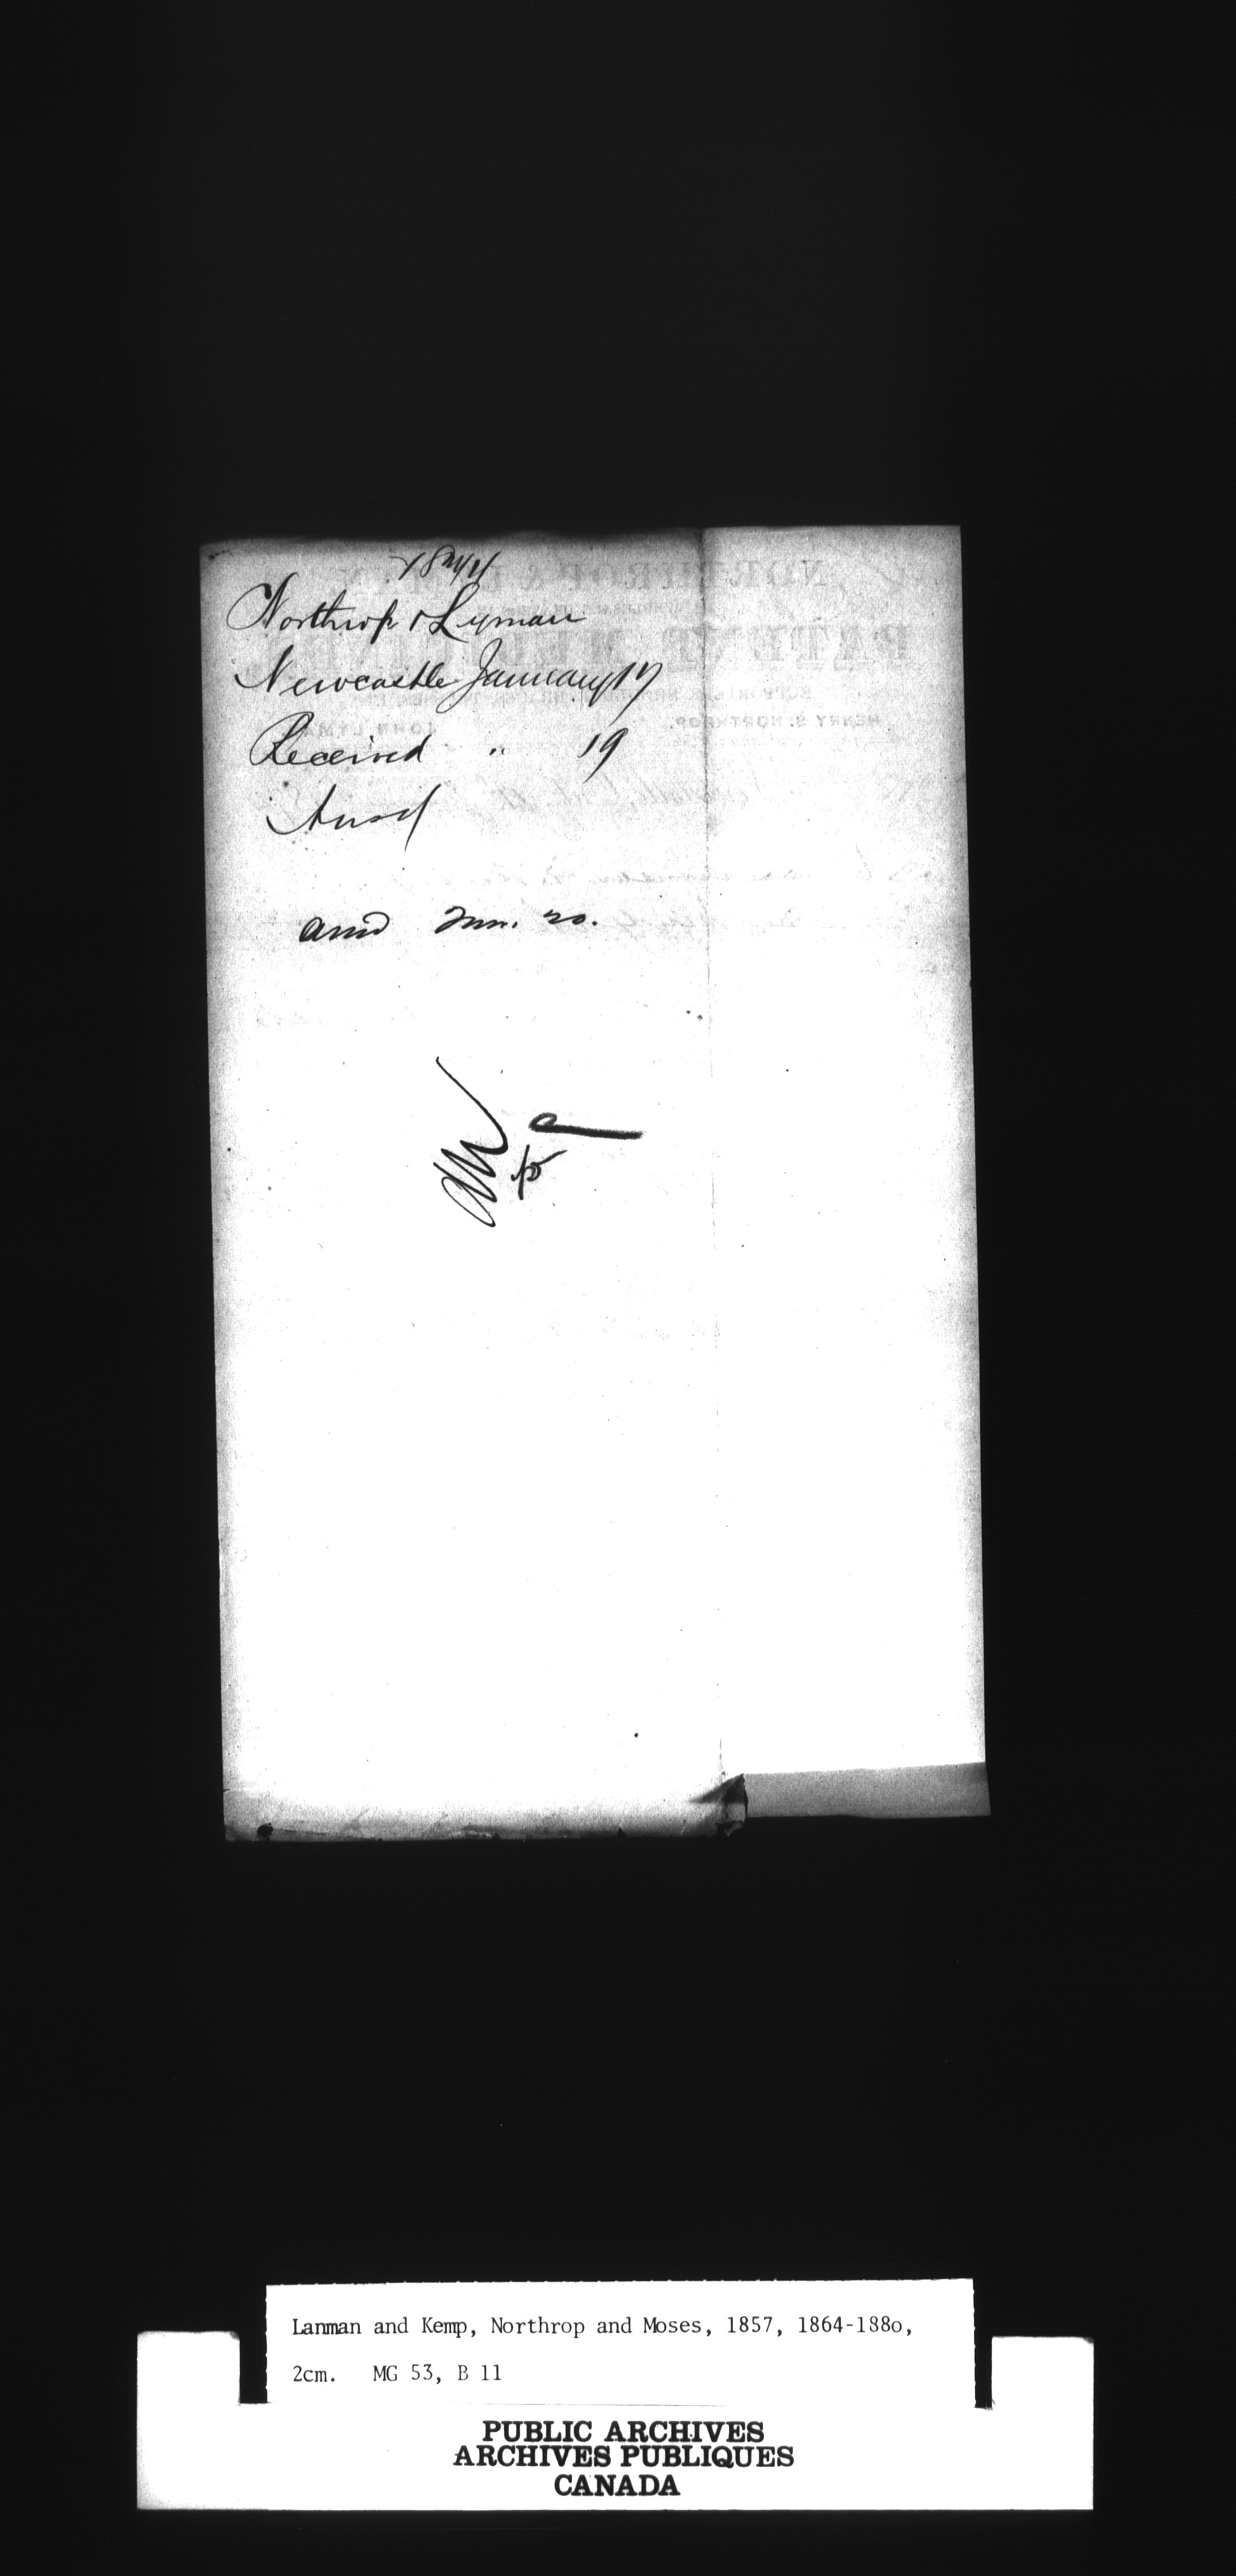 Northrop & Lyman
Newcastle January 17
Received " 19
Ansd
ansd Jan. 20.
Lanman and Kemp, Northrop and Moses, 1857, 1864-188o,
2cm. MG 53, B 11
PUBLIC ARCHIVES
ARCHIVES PUBLIQUES
CANADA